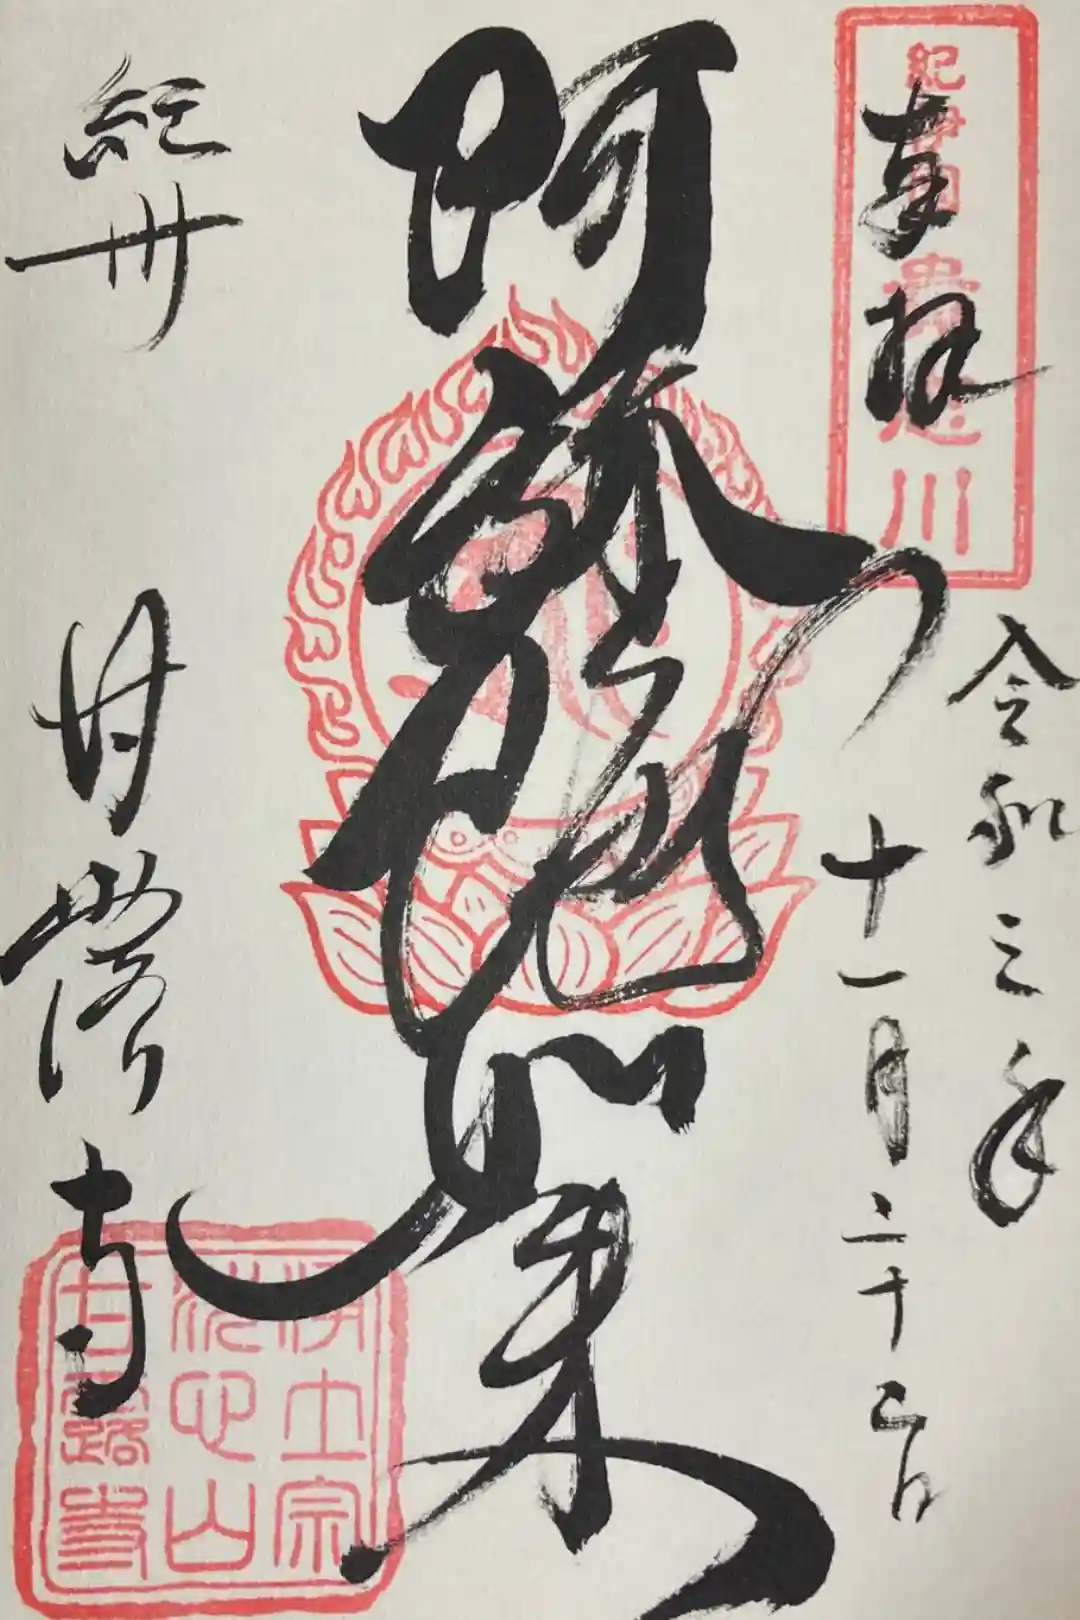 紀伊国
貴志川
奉拝
令和三年
十一月二十三日
阿弥陀如来
紀州
甘露寺
浄土宗
甘露寺